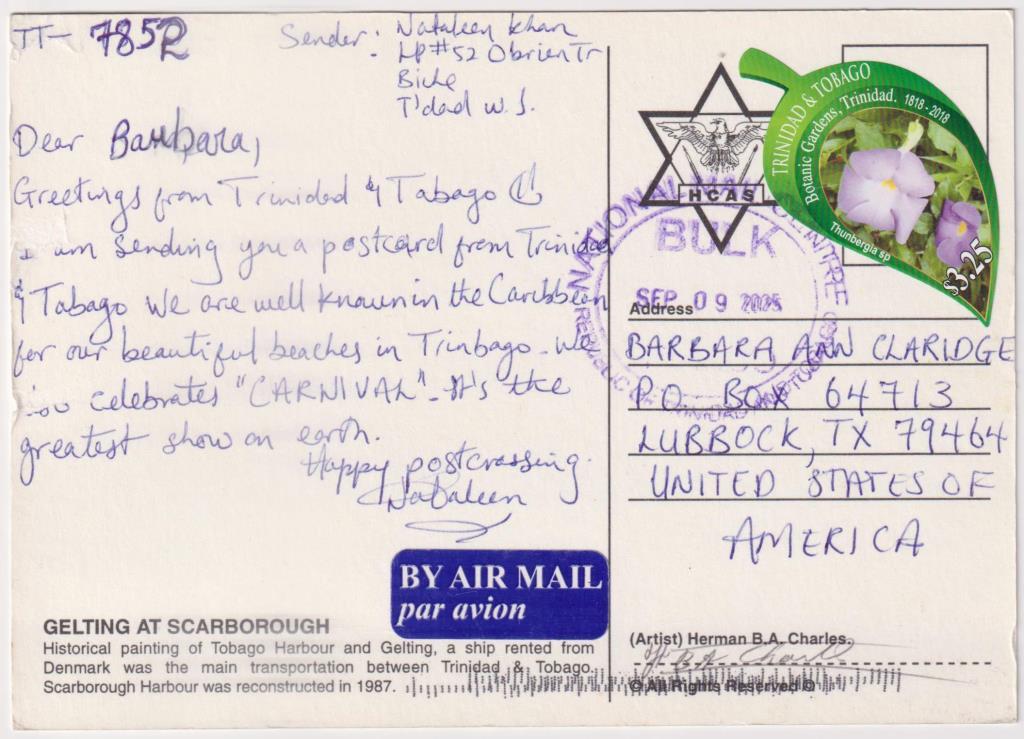 TT- 7852
Sender: Nataleen Khan
LP #52 Obrien Tr
Biche
T'dad W.I.
Dear Barbara,
Greetings from Trinidad & Tabago
I am sending you a postcard from Trinidad
& Tabago we are well known in the Caribbean
for our beautiful beaches in Trinbago. We
celebrates "CARNIVAL". It's the
greatest show on earth.
Happy postcrossing.
Nataleen
BY AIR MAIL
par avion
GELTING AT SCARBOROUGH
Historical painting of Tobago Harbour and Gelting, a ship rented from
Denmark was the main transportation between Trinidad & Tobago.
Scarborough Harbour was reconstructed in 1987.
HCAS
TRINIDAD & TOBAGO
Botanic Gardens, Trinidad. 1818 - 2018
Thunbergia sp
$3.25
NATIONAL MAIL CENTRE
BULK
SEP 09 2025
REPUBLIC OF TRINIDAD AND TOBAGO
Address
BARBARA ANN CLARIDGE
P.O. BOX 64713
LUBBOCK, TX 79464
UNITED STATES OF
AMERICA
(Artist) Herman B.A. Charles.
H B.A. Charles
© All Rights Reserved ©